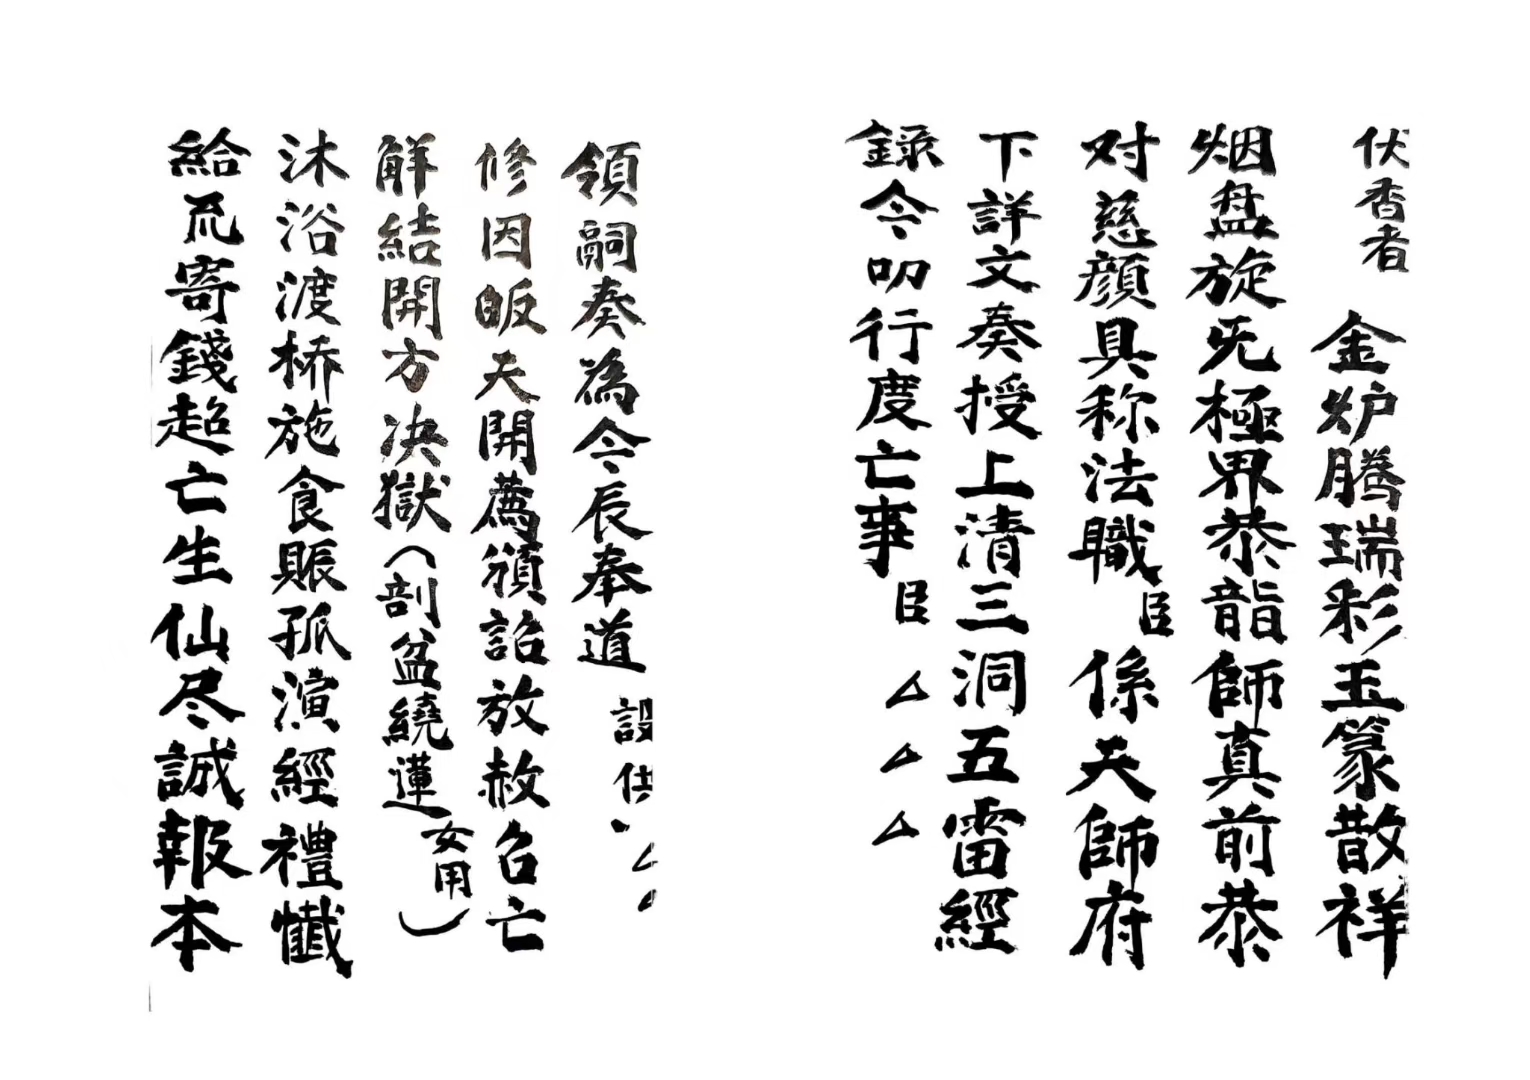 伏香者　金炉腾瑞彩玉篆散祥
烟盘旋旡極界恭龍師真前恭
对慈顔具称法職臣係天師府
下詳文奏授上清三洞五雷經
錄今叩行度亡事臣△△△
領詞奏為今辰奉道設供、△△
修因皈天開薦頒詔放赦召亡
解結開方决獄（剖盆繞蓮女用）
沐浴渡桥施食賑孤演經禮懺
給寄錢超亡生仙尽誠報本